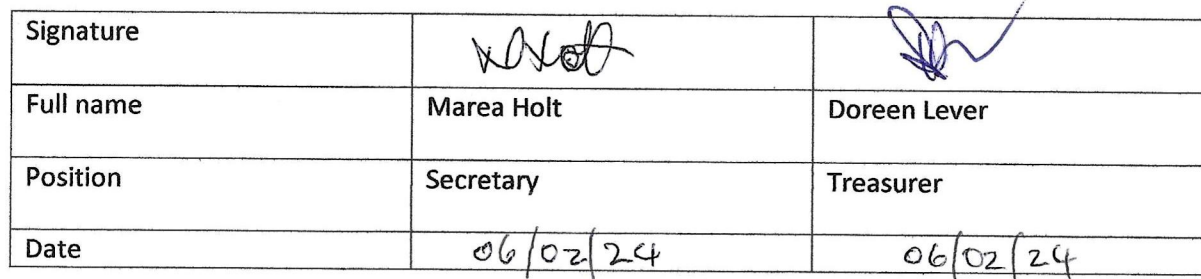 Signature
Full name Marea Holt Doreen Lever
Position Secretary Treasurer
Date 06/02/24 06/02/24